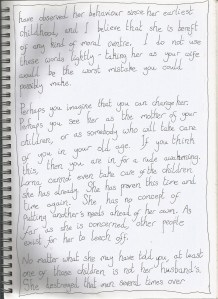 have observed her behaviour since her earliest
childhood, and I believe that she is bereft
of any kind of moral centre. I do not use
these words lightly - taking her as your wife
would be the worst mistake you could
possibly make.
Perhaps you imagine that you can change her.
Perhaps you see her as the mother of your
children, or as somebody who will take care
of you in your old age. If you think
this, then you are in for a rude awakening.
Lorna cannot even take care of the children
she has already. She has proven this time and
time again. She has no concept of
putting another's needs ahead of her own. As
far as she is concerned, other people
exist for her to leech off.
No matter what she may have told you, at least
one of those children is not her husband's.
She betrayed that man several times over